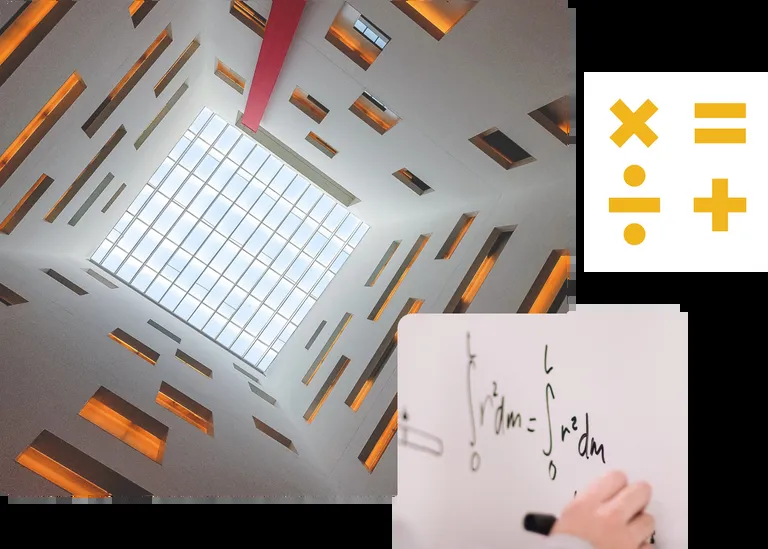 × =
÷ +
∫₀ r²dm = ∫₀ᴸ r²dm